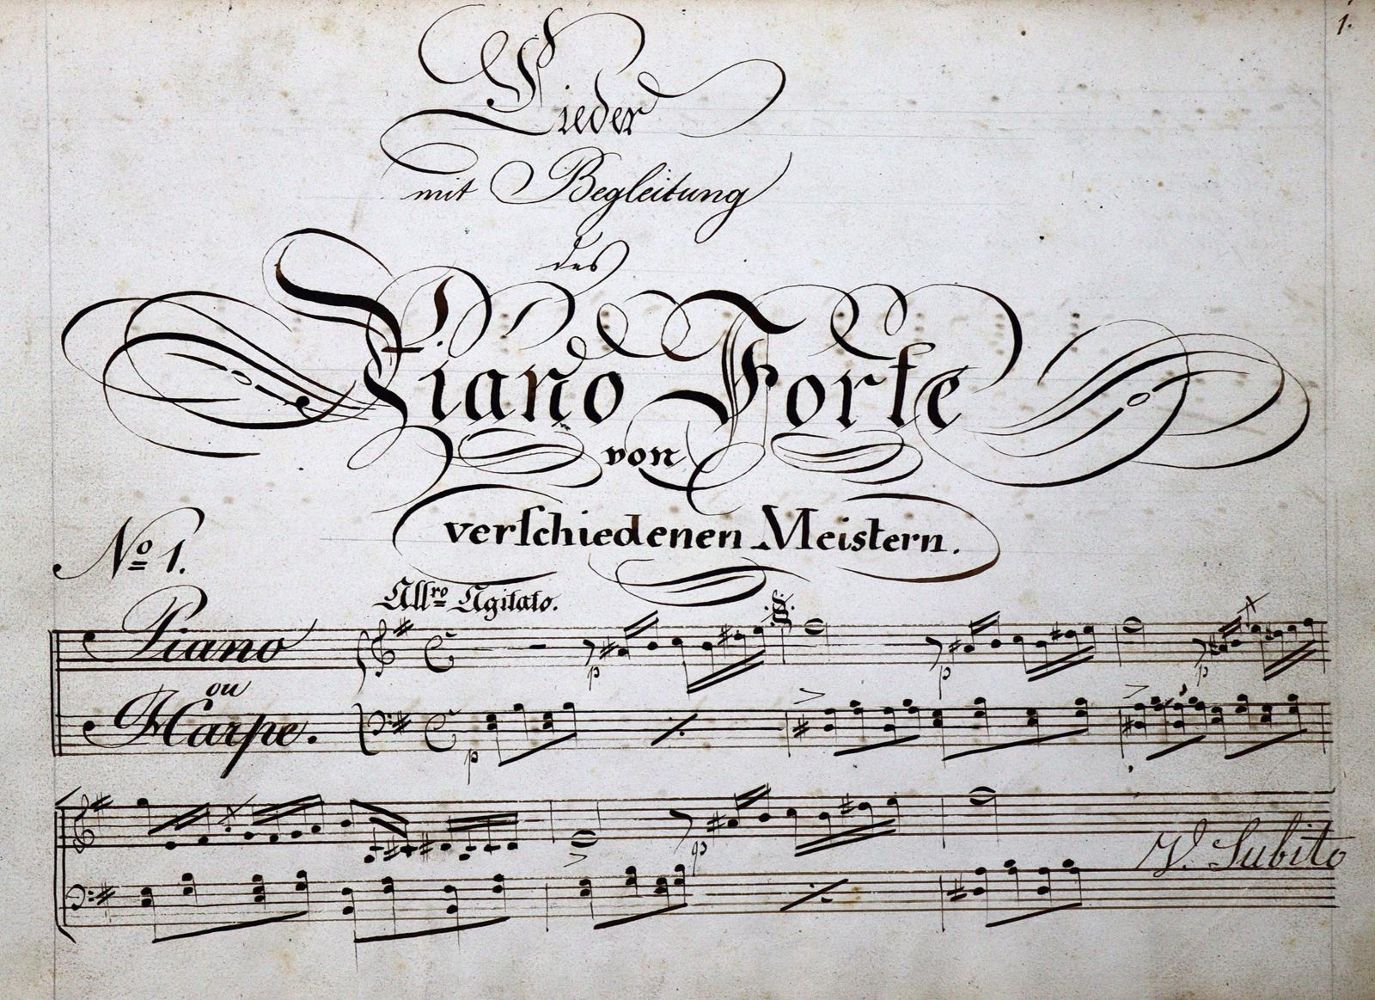 1.
Lieder
mit Begleitung
des
Piano Forte
von
verſchiedenen Meistern.
No 1.
Allro Agitato.
Piano
ou
Harpe.
p
p
p
p
p
V. Subito